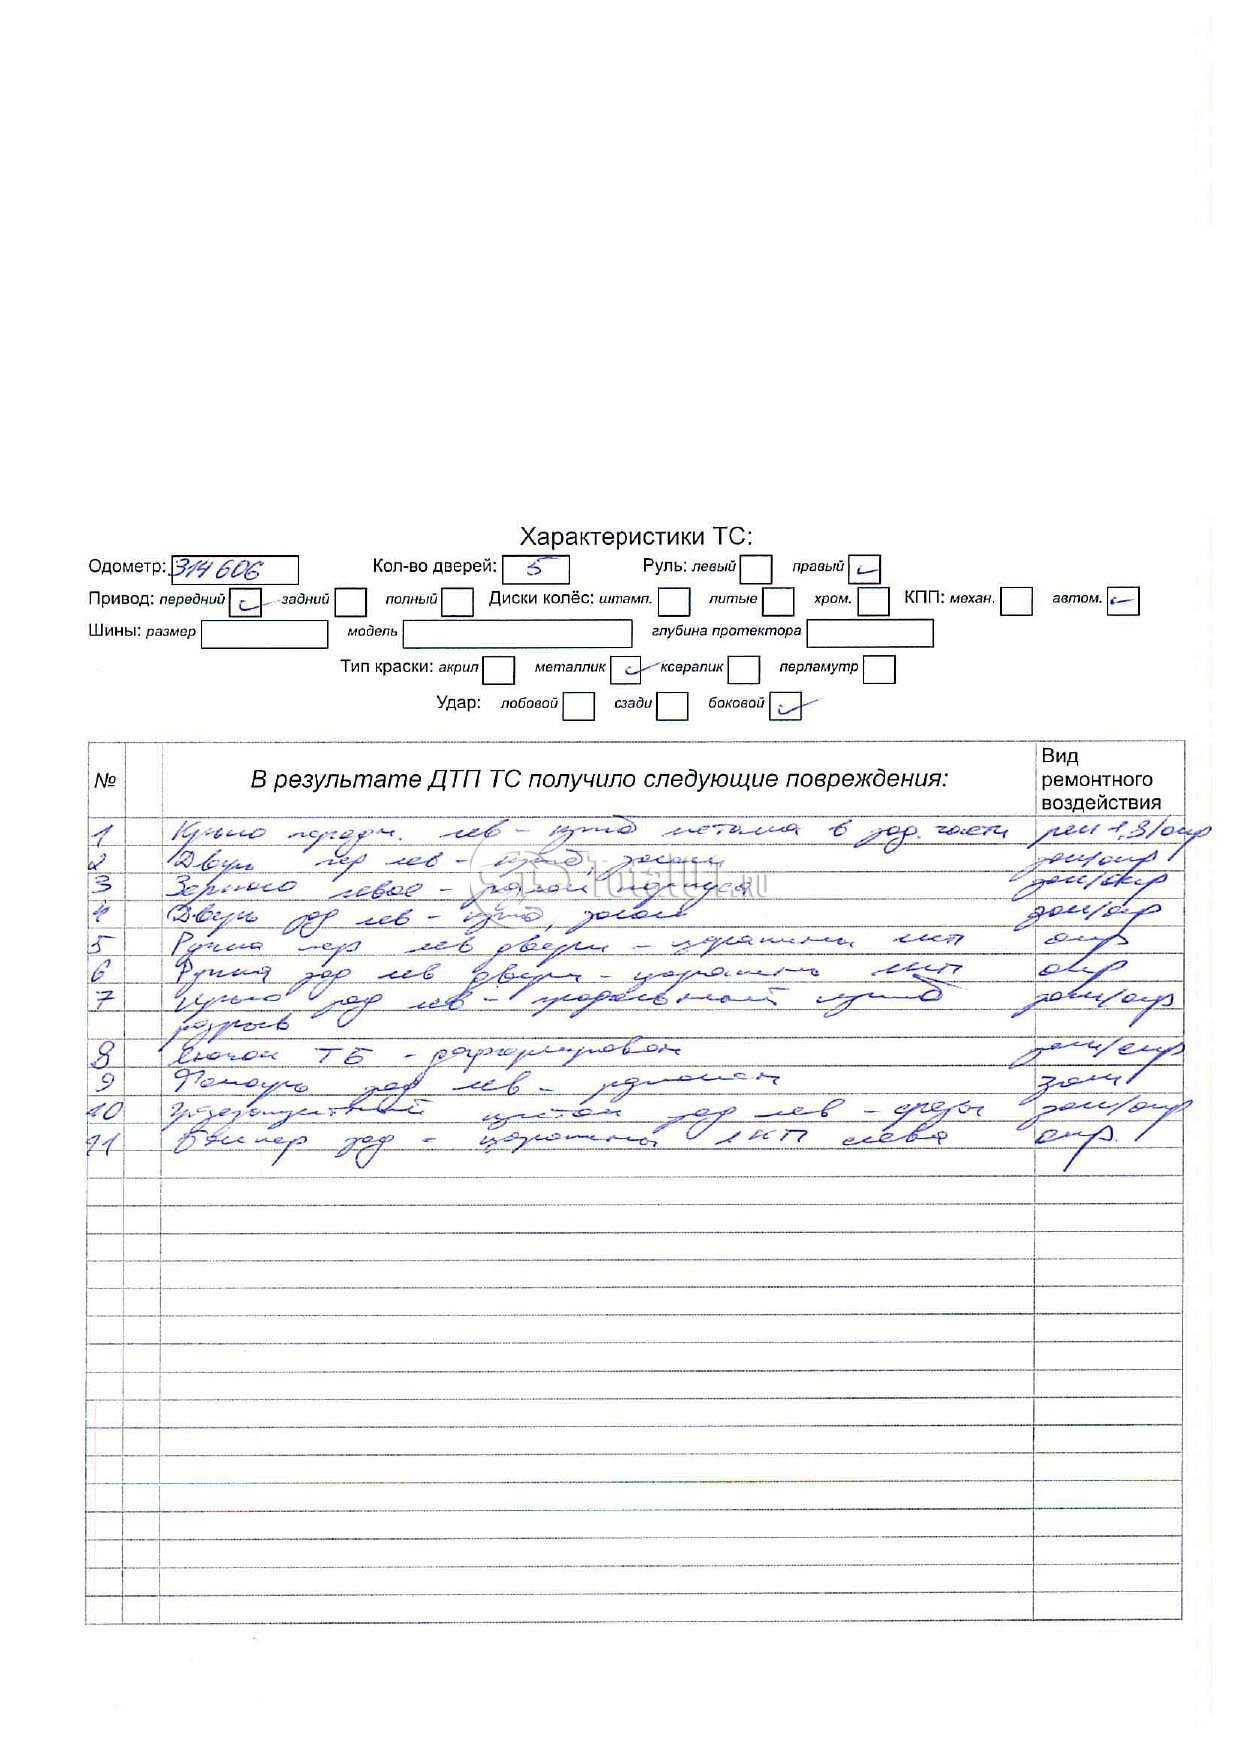 Характеристики ТС:
Одометр: 314606 Кол-во дверей: 5 Руль: левый правый
Привод: передний задний полный Диски колёс: штамп. литые хром. КПП: механ. автом.
Шины: размер модель глубина протектора
Тип краски: акрил металлик ксералик перламутр
Удар: лобовой сзади боковой
№ В результате ДТП ТС получило следующие повреждения: Вид ремонтного воздействия
1 Крыло передн. лев - изгиб металла в зад. части рем 1,3/окр
2 Дверь пер лев - изгиб, залом зам/окр
3 Зеркало левое - разлом корпуса зам/окр
4 Дверь зад лев - изгиб, залом зам/окр
5 Ручка пер лев двери - царапины лкп окр
6 Ручка зад лев двери - царапины лкп окр
7 Крыло зад лев - изгиб зам/окр
разрыв
8 Лючок ТБ - деформирован зам/окр
9 Фонарь зад лев - зам
10 щиток зад лев - срезы зам/окр
11 Бампер зад - царапины ЛКП слева окр.